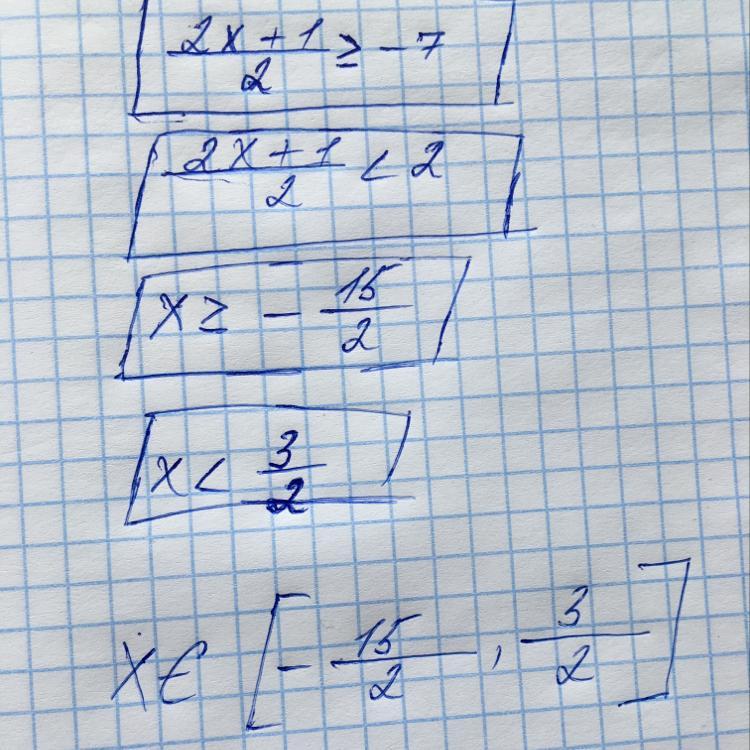 (2x+1)/2 ≥ -7
(2x+1)/2 < 2
x ≥ - 15/2
x < 3/2
x ∈ [- 15/2, 3/2]